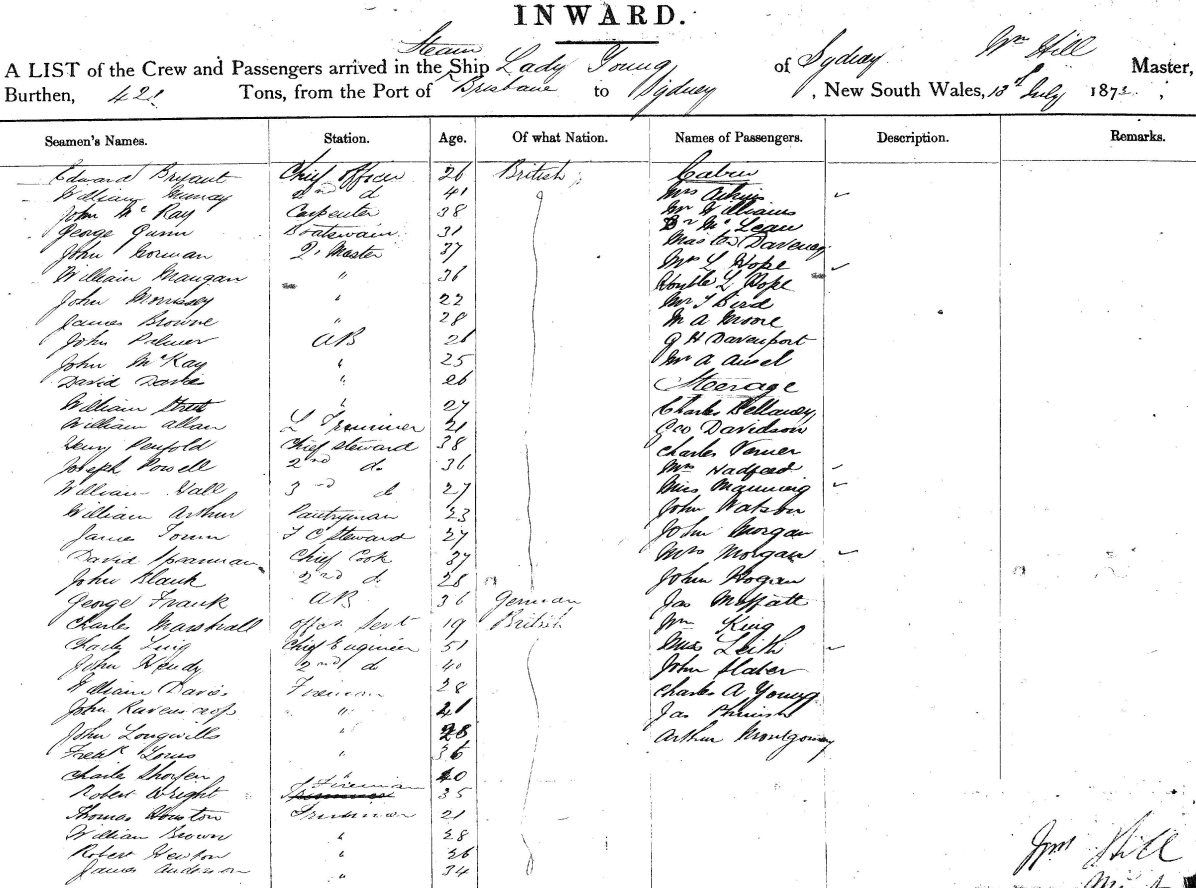 INWARD.
Steam
A LIST of the Crew and Passengers arrived in the Ship Lady Young of Sydney Wm Hill Master,
Burthen, 421 Tons, from the Port of Brisbane to Sydney, New South Wales, 13th July 1873,
Seamen's Names. Station. Age. Of what Nation. Names of Passengers. Description. Remarks.
Edward Bryant Chief Officer 26 British Cabin
William Murray 2nd d 41 Mrs Atkins
John McRay Carpenter 38 Mr Williams
George Gunn Boatswain 31 Dr McLean
John Gorman Q. Master 37 Master Daveney
William Mangan " 36 Mrs L Hope
John Morrissey " 22 Honble L Hope
James Browne " 28 Mr T Bird
John Palmer AB 26 M A Moore
John McKay " 25 G H Davenport
David Davies " 26 Mr A Ansel
William Street " 27 Steerage
William Allan L Trimmer 21 Charles Bellaney
Henry Penfold Chief Steward 38 Geo Davidson
Joseph Powell 2nd do 36 Charles Verner
William Hall 3rd do 27 Mrs Hadfeed
William Arthur Pantryman 23 Miss Manning
James F C Steward 27 John Watson
David Spearman Chief Cook 37 John Morgan
John Blank 2nd d 28 Mrs Morgan
George Frank AB 36 German John Hogan
Charles Marshall Servt 19 British Jas Moffatt
Charles Chief Engineer 51 Wm King
John Hendy 2nd d 40 Miss Leith
William Davies Fireman 28 John Slater
John Ravenscrof " 21 Charles A Young
John Longwills " 28 Jas
Fredk " 36 Arthur Montgomery
Charles " 40
Robert Wright Fireman 35
Thomas Houston Trimmer 21
William Brown " 28
Robert Newton " 26
James Anderson " 34
Wm Hill